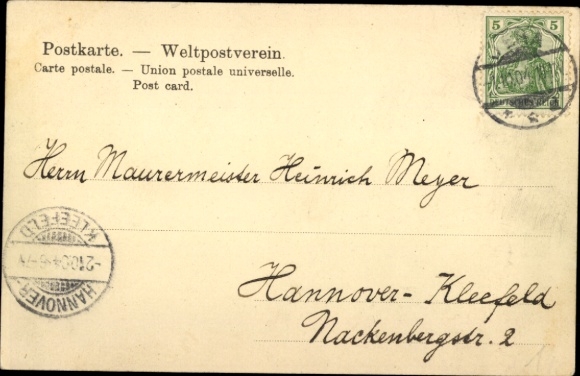 Postkarte. — Weltpostverein.
Carte postale. — Union postale universelle.
Post card.
5 5
DEUTSCHES REICH
Herrn Maurermeister Heinrich Meyer
Hannover - Kleefeld
Nackenbergstr. 2
HANNOVER-
KLEEFELD